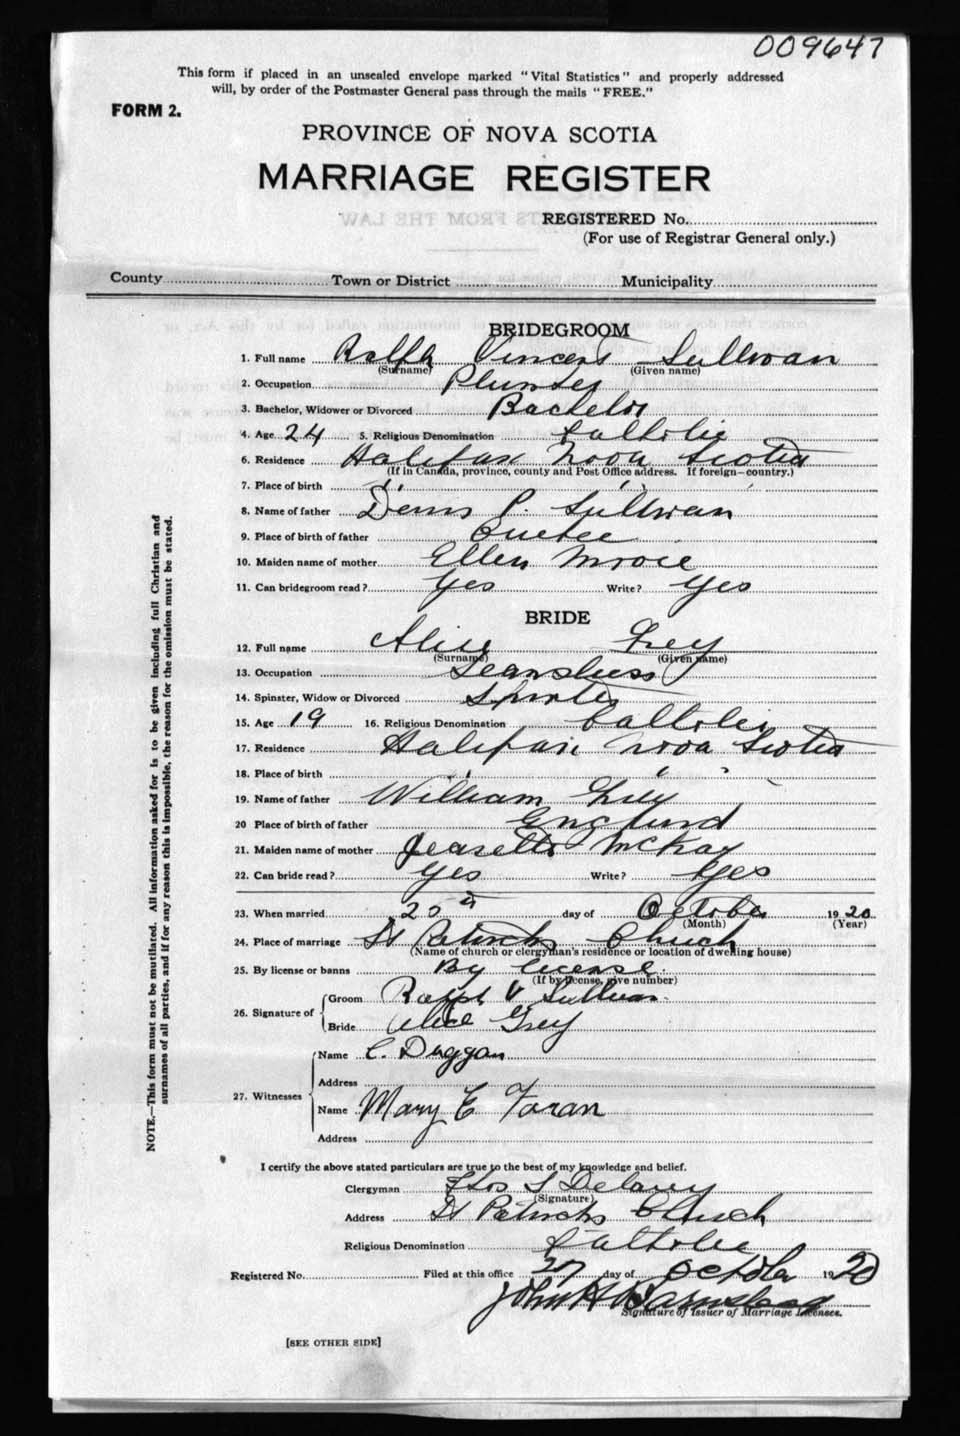 009647
This form if placed in an unsealed envelope marked "Vital Statistics" and properly addressed
will, by order of the Postmaster General pass through the mails "FREE."
FORM 2.
PROVINCE OF NOVA SCOTIA
MARRIAGE REGISTER
REGISTERED No.
(For use of Registrar General only.)
County Town or District Municipality
BRIDEGROOM
1. Full name Ralph Vincent Sullivan
(Surname) (Given name)
2. Occupation Plumber
3. Bachelor, Widower or Divorced Bachelor
4. Age 24 5. Religious Denomination Catholic
6. Residence Halifax Nova Scotia
(If in Canada, province, county and Post Office address. If foreign—country.)
7. Place of birth " " "
8. Name of father Denis P. Sullivan
9. Place of birth of father Quebec
10. Maiden name of mother Ellen
11. Can bridegroom read? Yes Write? Yes
BRIDE
12. Full name Alice Grey
(Surname) (Given name)
13. Occupation
14. Spinster, Widow or Divorced Spinster
15. Age 19 16. Religious Denomination Catholic
17. Residence Halifax Nova Scotia
18. Place of birth " " "
19. Name of father William Grey
20 Place of birth of father England
21. Maiden name of mother McKay
22. Can bride read? Yes Write? Yes
23. When married 20th day of October 1920
(Month) (Year)
24. Place of marriage St Patricks Church
(Name of church or clergyman's residence or location of dwelling house)
25. By license or banns By License
(If by license, give number)
26. Signature of Groom Ralph V Sullivan
Bride Alice Grey
27. Witnesses Name C. Duggan
Address
Name Mary E Foran
Address
I certify the above stated particulars are true to the best of my knowledge and belief.
Clergyman
(Signature)
Address St Patricks Church
Religious Denomination Catholic
Registered No. Filed at this office 27 day of October 1920
John H Barnstead
Signature of Issuer of Marriage Licenses.
[SEE OTHER SIDE]
NOTE.—This form must not be mutilated. All information asked for is to be given including full Christian and
surnames of all parties, and if for any reason this is impossible, the reason for the omission must be stated.